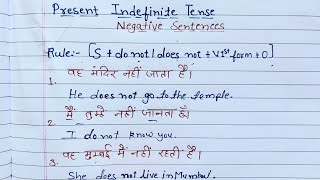 Present Indefinite Tense
Negative Sentences
Rule:- [S + do not / does not + V1st form + O]
1. वह मंदिर नहीं जाता है।
He does not go to the temple.
2. मैं तुम्हें नहीं जानता हूँ।
I do not know you.
3. वह मुम्बई में नहीं रहती है।
She does not live in Mumbai.